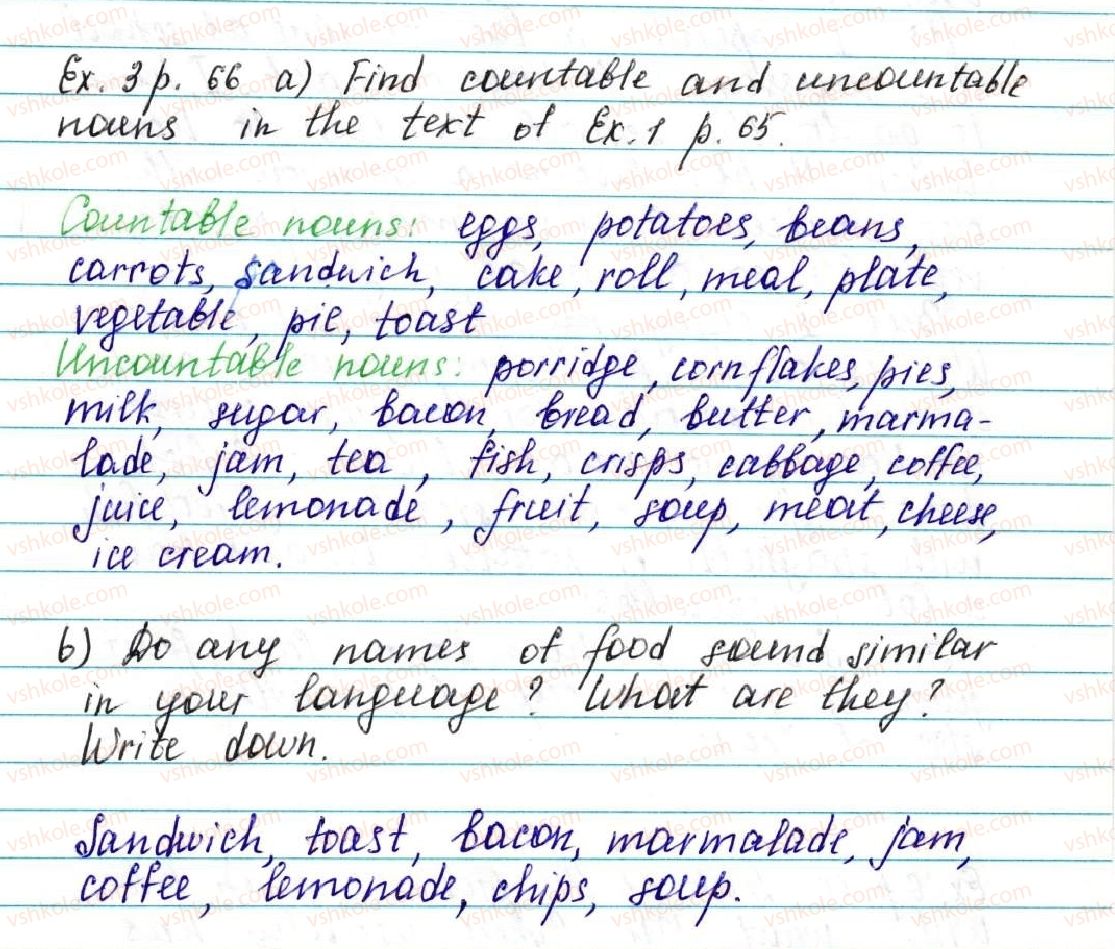 Ex. 3 p. 66 a) Find countable and uncountable
nouns in the text of Ex. 1 p. 65.
Countable nouns: eggs, potatoes, beans,
carrots, sandwich, cake, roll, meal, plate,
vegetable, pie, toast
Uncountable nouns: porridge, cornflakes, pies,
milk, sugar, bacon, bread, butter, marma-
lade, jam, tea, fish, crisps, cabbage, coffee,
juice, lemonade, fruit, soup, meat, cheese,
ice cream.
b) Do any names of food sound similar
in your language? What are they?
Write down.
Sandwich, toast, bacon, marmalade, jam,
coffee, lemonade, chips, soup.